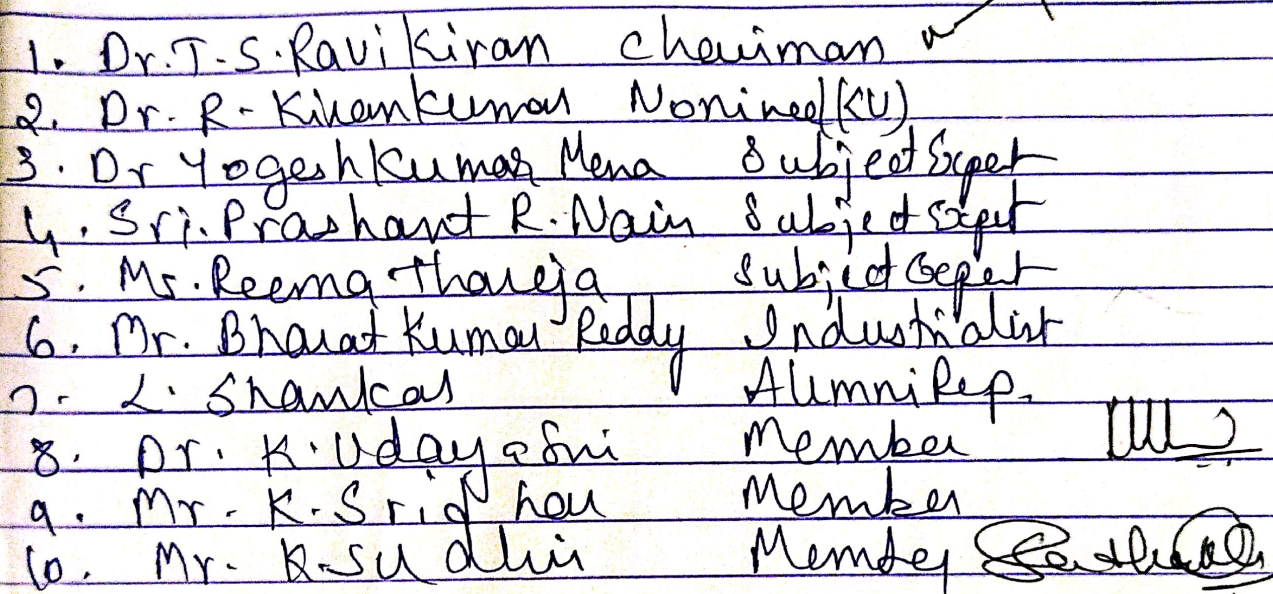 1. Dr. T.S. Ravi Kiran Chairman
2. Dr. R. Kirankumar Nominee (KU)
3. Dr Yogesh Kumar Mena Subject Expert
4. Sri. Prashant R. Nair Subject Expert
5. Ms. Reema Thareja Subject Expert
6. Mr. Bharat Kumar Reddy Industrialist
7. L. Shankar Alumni Rep.
8. Dr. K. Udaya Sri Member
9. Mr. K. Sridhar Member
10. Mr. K. Sudhir Member